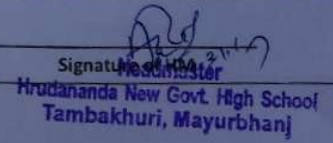 Signature of HM
Headmaster
Hrudananda New Govt. High School
Tambakhuri, Mayurbhanj